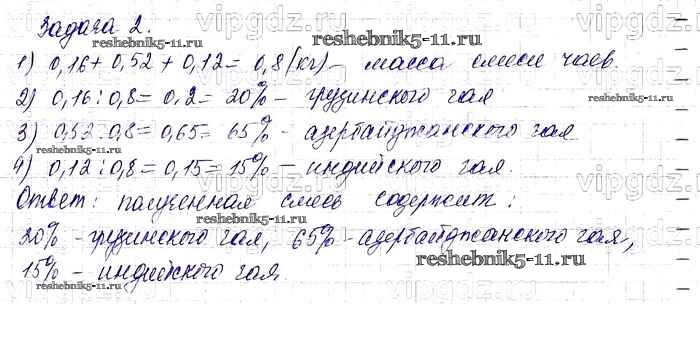 Задача 2.
reshebnik5-11.ru
1) 0,16 + 0,52 + 0,12 = 0,8 (кг) – масса смеси чаев.
2) 0,16 : 0,8 = 0,2 = 20% – грузинского чая
reshebnik5-11.ru
3) 0,52 : 0,8 = 0,65 = 65% - азербайджанского чая
4) 0,12 : 0,8 = 0,15 = 15% – индийского чая.
reshebnik5-11.ru
Ответ: полученная смесь содержит:
reshebnik5-11.ru
20% - грузинского чая, 65% - азербайджанского чая,
15% - индийского чая.
reshebnik5-11.ru
vipgdz.ru